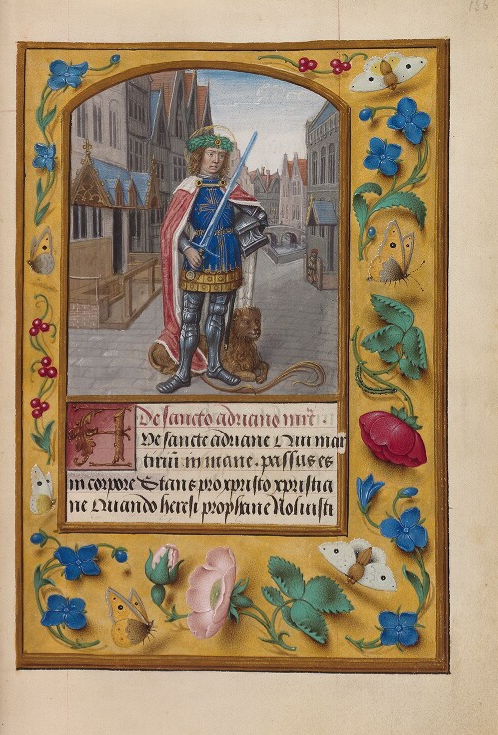 De sancto adriano mr̄e
Ve sancte adriane Qui mar
tiriū in mane. passus es
in corpore Stans pro xpristo xpristia
ne Quando heresi prophane Noluisti